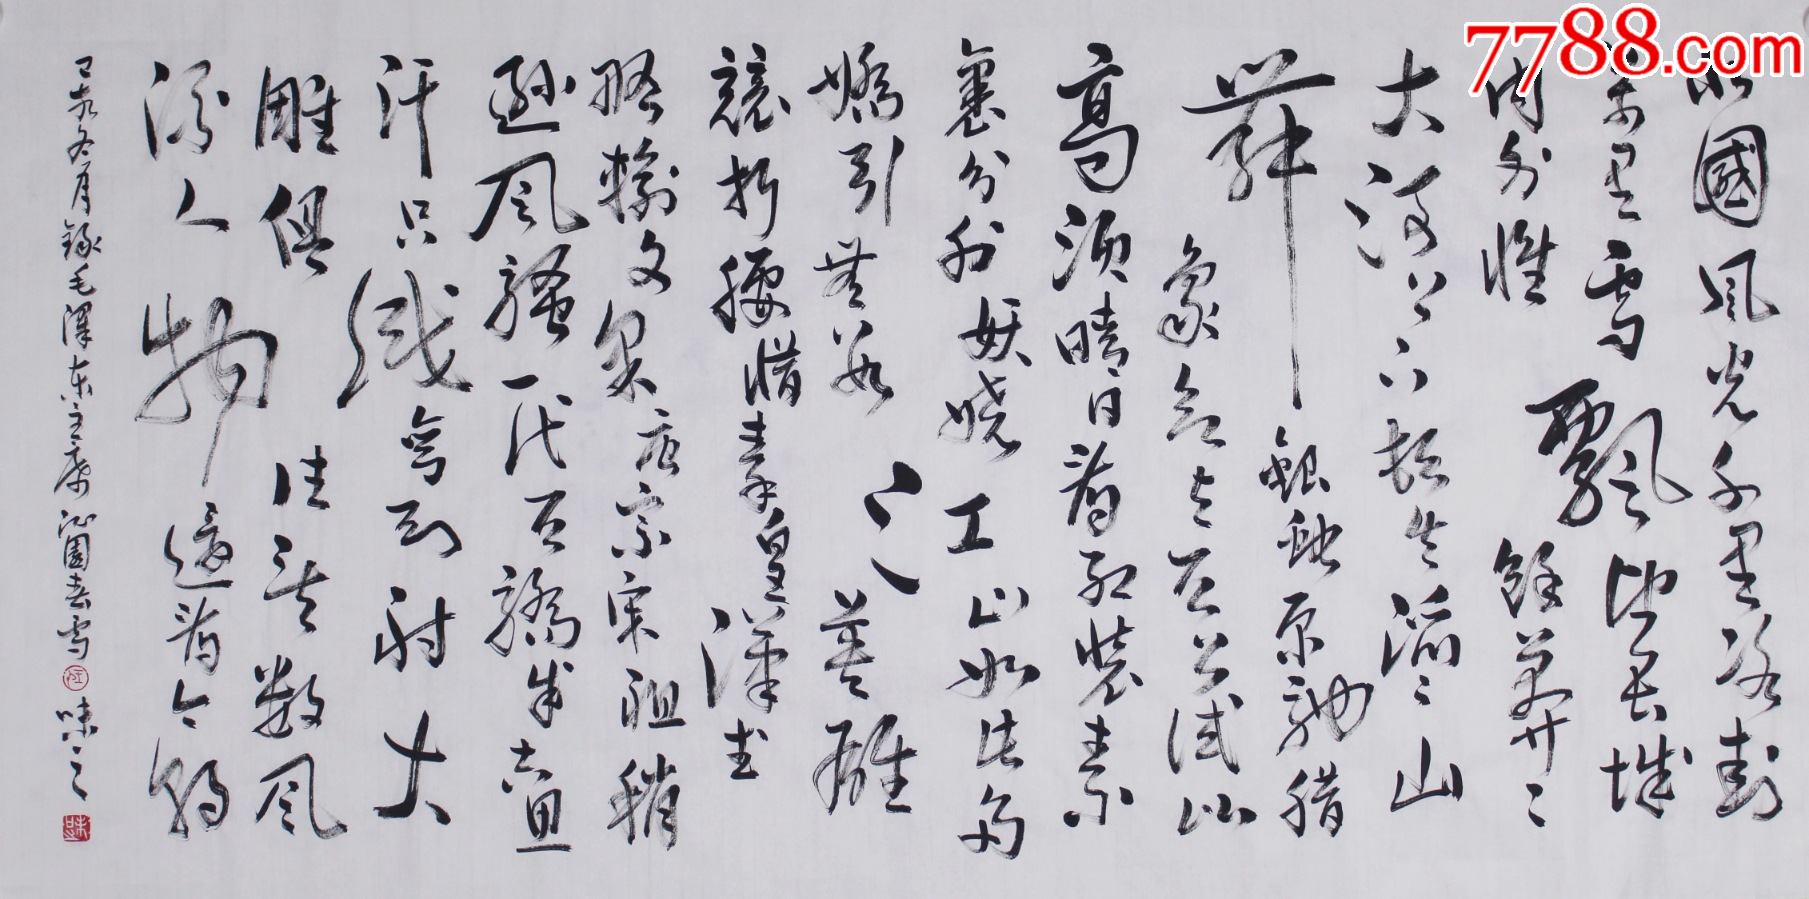 7788.com
北國風光千里冰封
萬里雪飄望長城
内外惟餘莽々
大河上下頓失滔々山
舞銀蛇原馳腊
象欲与天公試比
高須晴日看紅裝素
裹分外妖嬈江山如此多
嬌引無數英雄
競折腰惜秦皇漢武
略輸文采唐宗宋祖稍
遜風騷一代天驕成吉思
汗只識彎弓射大
雕俱往矣數風
流人物還看今朝
己亥冬月錄毛澤東主席沁園春雪 味之